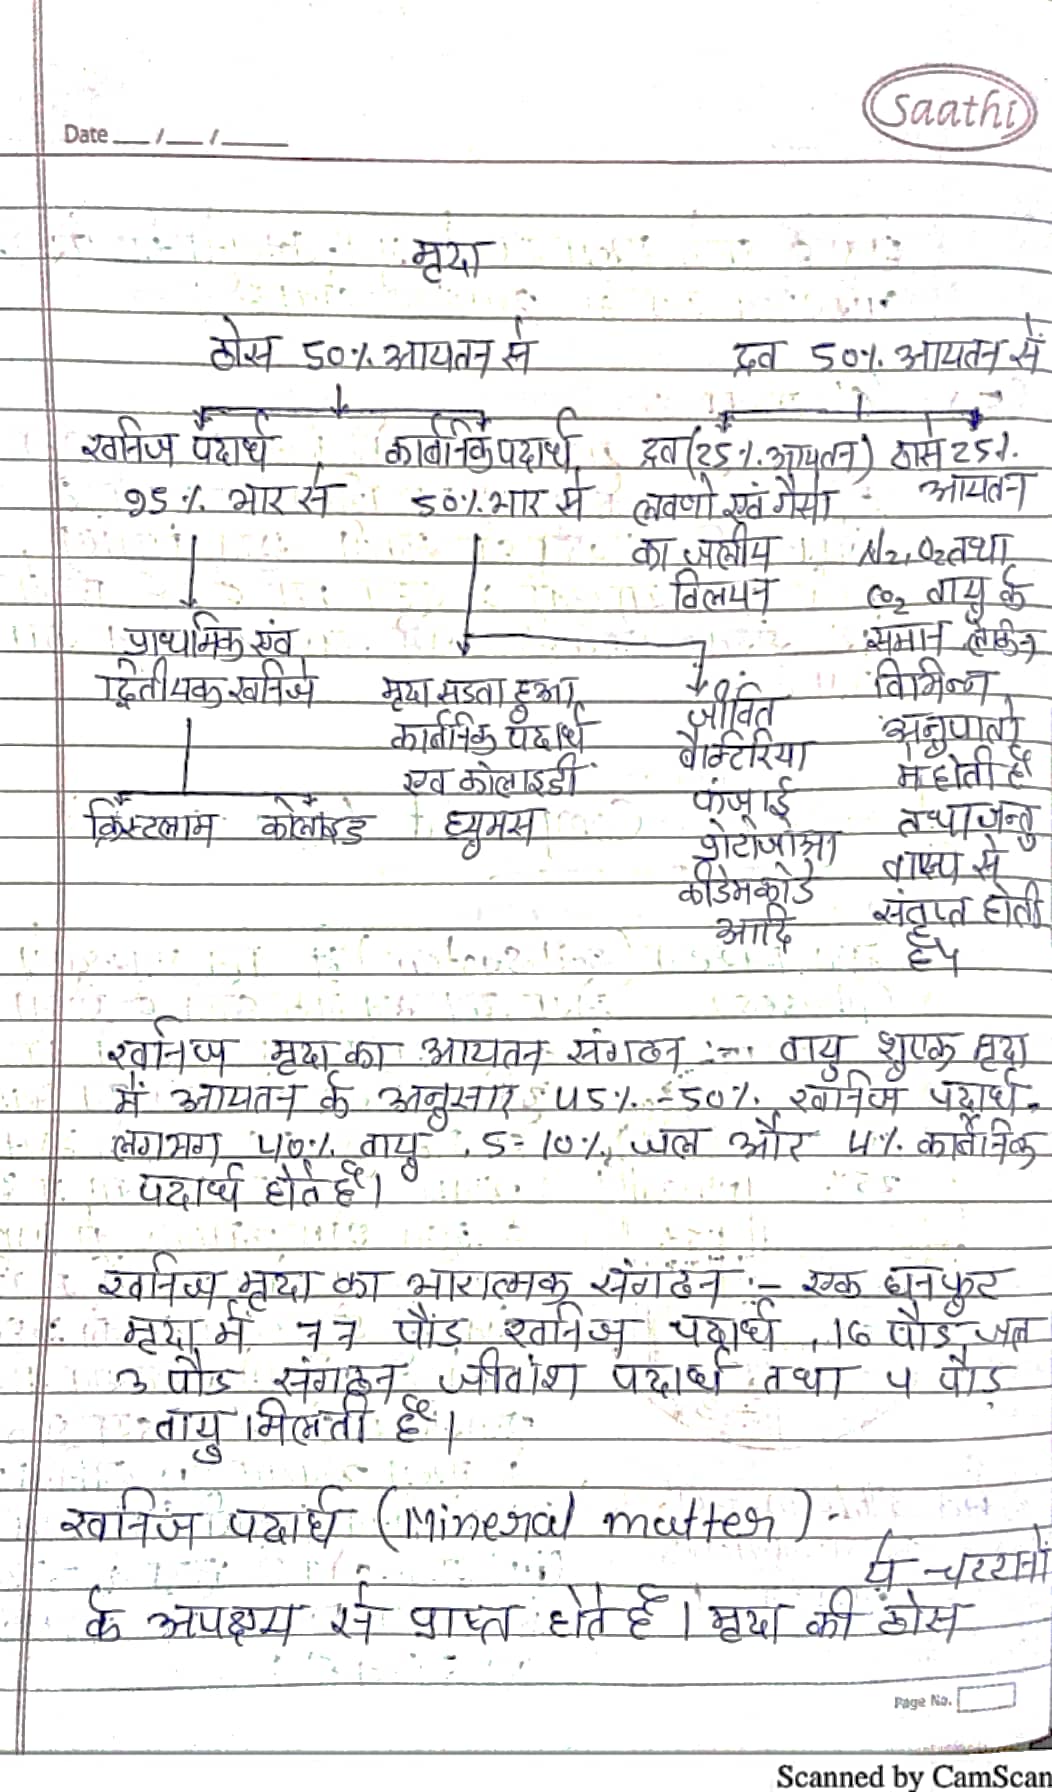 Saathi
Date __/__/____
मृदा
ठोस 50% आयतन से द्रव 50% आयतन से
खनिज पदार्थ कार्बनिक पदार्थ द्रव (25% आयतन) ठोस 25%
95% भार से 50% भार से लवणो एवं गैसो आयतन
का जलीय N2, O2 तथा
विलयन CO2 वायु के
प्राथमिक एंव समान लेकिन
द्वितीयक खनिज मृदा सडता हुआ जीवित विभिन्न
कार्बनिक पदार्थ बैक्टिरिया अनुपातो
एव कोलाइडी फंजाई में होती है
क्रिस्टलाम कोलाइड ह्यूमस प्रोटोजोआ तथा जन्तु
कीडेमकोडे वाष्प से
आदि संतृप्त होती
खनिज मृदा का आयतन संगठन :- वायु शुष्क मृदा
में आयतन के अनुसार 45% - 50% खनिज पदार्थ
लगभग 40% वायु , 5=10%, जल और 4% कार्बनिक
पदार्थ होते है।
खनिज मृदा का भारात्मक संगठन :- एक घनफुट
मृदा में 77 पौंड खनिज पदार्थ , 16 पौड जल
3 पौड संगठन जीवांश पदार्थ तथा 4 पौड
वायु मिलती है।
खनिज पदार्थ (Mineral matter) -
ये चट्टानो
के अपक्षय से प्राप्त होते है। मृदा की ठोस
Page No.
Scanned by CamScan